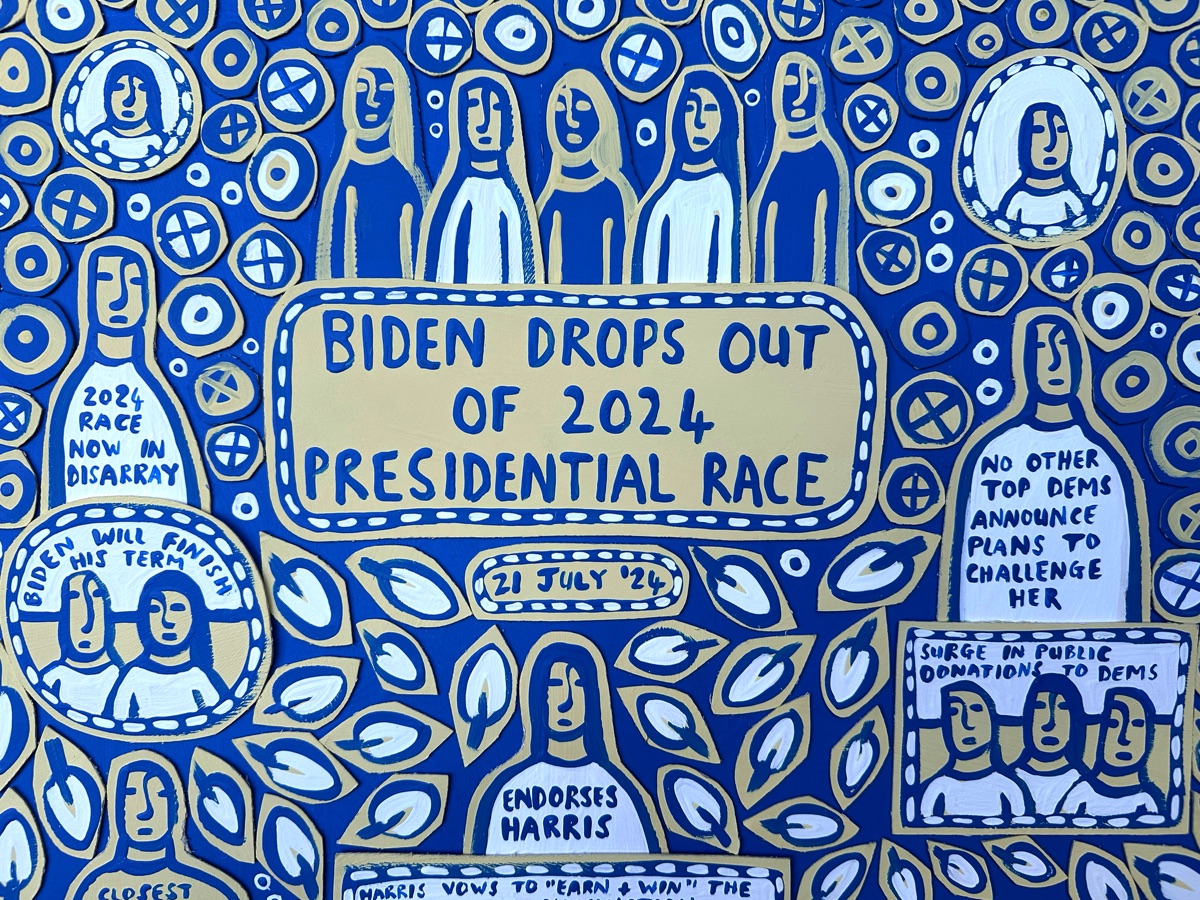 BIDEN DROPS OUT
OF 2024
PRESIDENTIAL RACE
2024
RACE
NOW IN
DISARRAY
NO OTHER
TOP DEMS
ANNOUNCE
PLANS TO
CHALLENGE
HER
21 JULY '24
BIDEN WILL FINISH
HIS TERM
SURGE IN PUBLIC
DONATIONS TO DEMS
ENDORSES
HARRIS
CLOSEST
HARRIS VOWS TO "EARN + WIN" THE